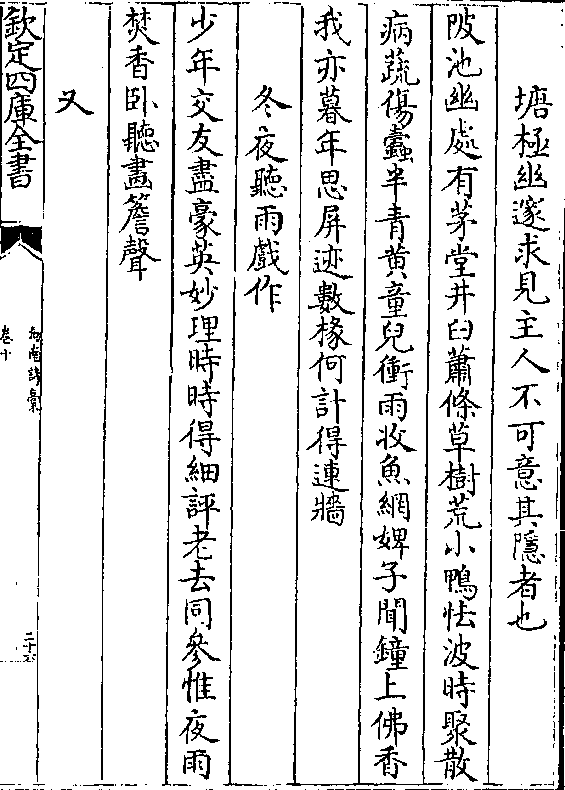 塘極幽邃求見主人不可意其隱者也
陂池幽處有茅堂井臼蕭條草樹荒小鴨怯波時聚散
病蔬傷蠹半青黄童兒衝雨收魚網婢子聞鐘上佛香
我亦暮年思屏迹數椽何計得連牆
冬夜聽雨戲作
少年交友盡豪英妙理時時得細評老去同參惟夜雨
焚香卧聽畫簷聲
又
欽定四庫全書
劍南詩稾
卷十